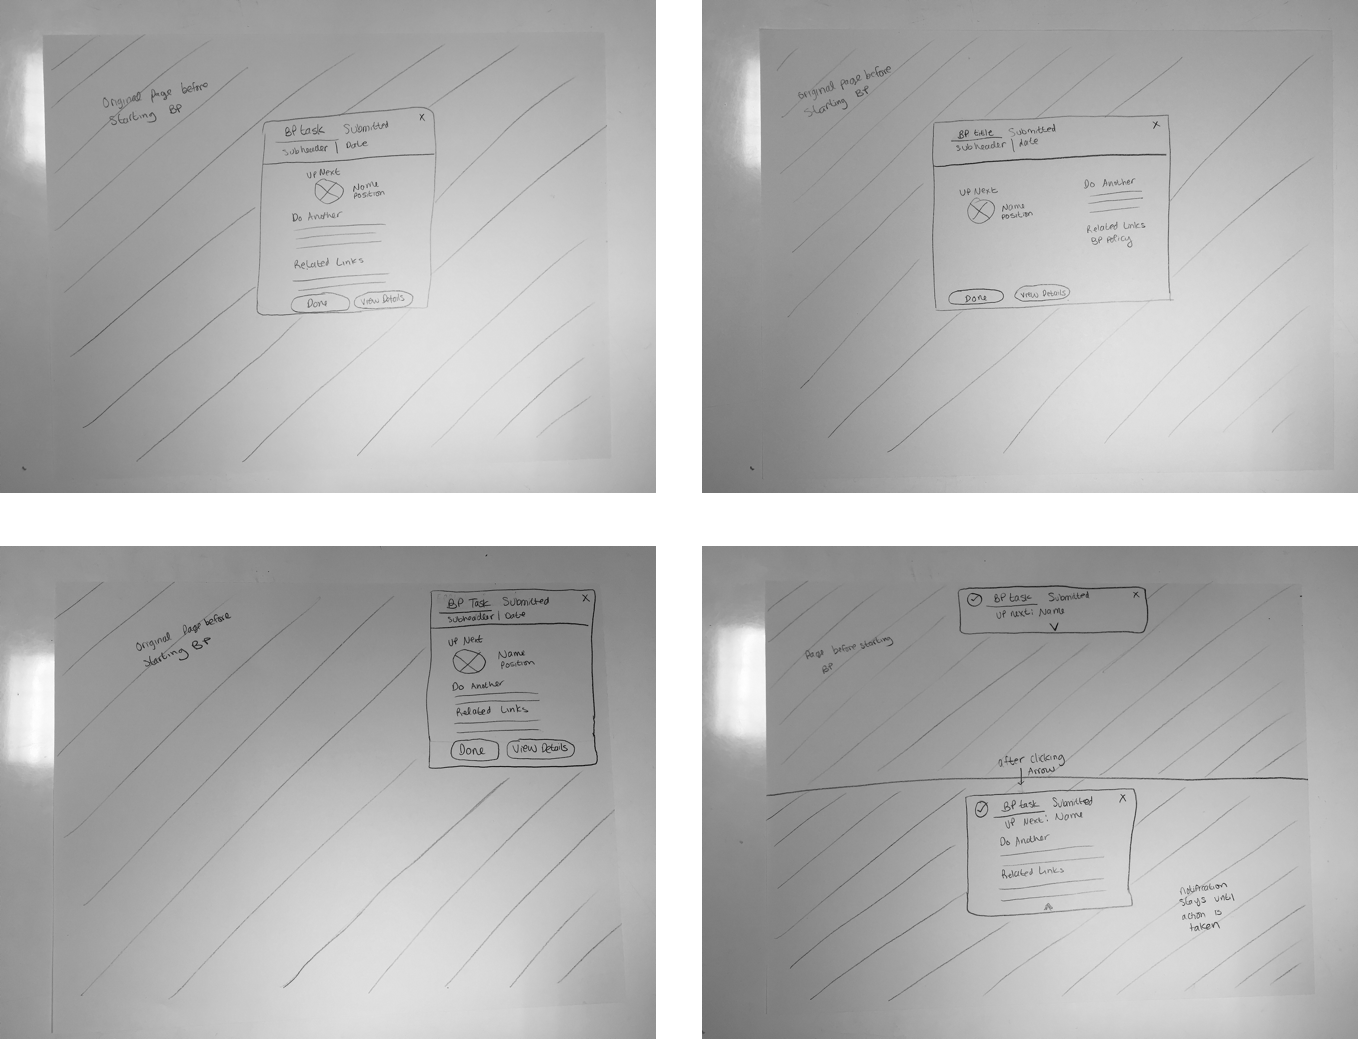 Original page before
Starting BP
BP task Submitted
X
Subheader | Date
UP Next
Name
Position
Do Another
Related Links
Done
View Details
Original page before
Starting BP
BP title Submitted
X
Subheader | date
UP Next
Name
Position
Do Another
Related Links
BP Policy
Done
View Details
Original Page before
Starting BP
BP Task Submitted
X
Subheader | Date
UP Next
Name
Position
Do Another
Related Links
Done
View Details
Page before starting
BP
BP task Submitted
X
UP next: Name
after clicking
Arrow
BP task Submitted
X
UP Next: Name
Do Another
Related Links
notification
stays until
action is
taken